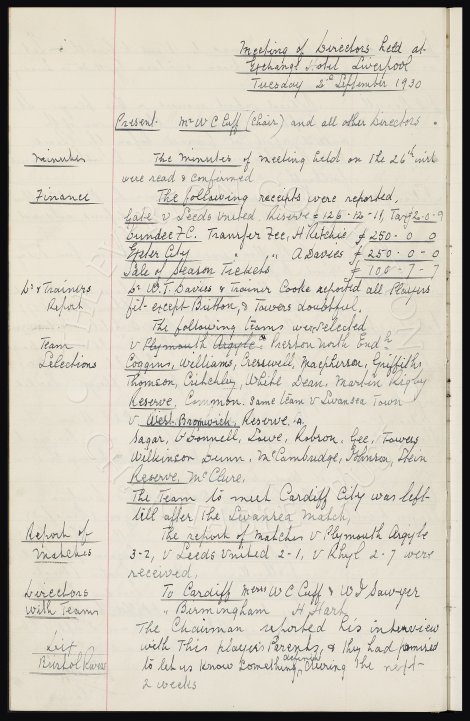 Meeting of Directors held at
Exchange Hotel Liverpool
Tuesday 2nd September 1930
Present. Mr W C Cuff (Chair) and all other Directors.
Minutes The Minutes of meeting held on the 26th inst
were read & confirmed
Finance The following receipts were reported,
Gate v Leeds United Reserve £126-12-11, 2-0-9
Dundee F.C. Transfer Fee, H Ritchie £250-0 0
Exeter City " " A Davies £250-0-0
Sale of Season Tickets £100-7-7
Dr & Trainers Dr W.T. Davies & Trainer Cooke reported all Players
Report fit except Britton, & Towers doubtful.
The following teams were selected
Team v Plymouth Argyle Preston North End
Selections Coggins, Williams, Cresswell, MacPherson, Griffiths
Thomson, Critchley, White Dean, Martin Rigby
Reserve, Common. Same team v Swansea Town
v West Bromwich, Reserve. A.
Sagar, O'Donnell, Lowe, Robson, Gee, Towers
Wilkinson Dunn, McCambridge, Johnson, Stein
Reserve, McClure,
The Team to meet Cardiff City was left
till after the Swansea Match,
Report of The report of matches v Plymouth Argyle
Matches 3-2, v Leeds United 2-1, v Rhyl 2-7 were
received,
Directors To Cardiff Messrs W C Cuff & W J Sawyer
with Teams " Birmingham H Hart
The Chairman reported his interview
with This players Parents, & they had promised
Bristol Rovers to let us know something definite during the next
2 weeks